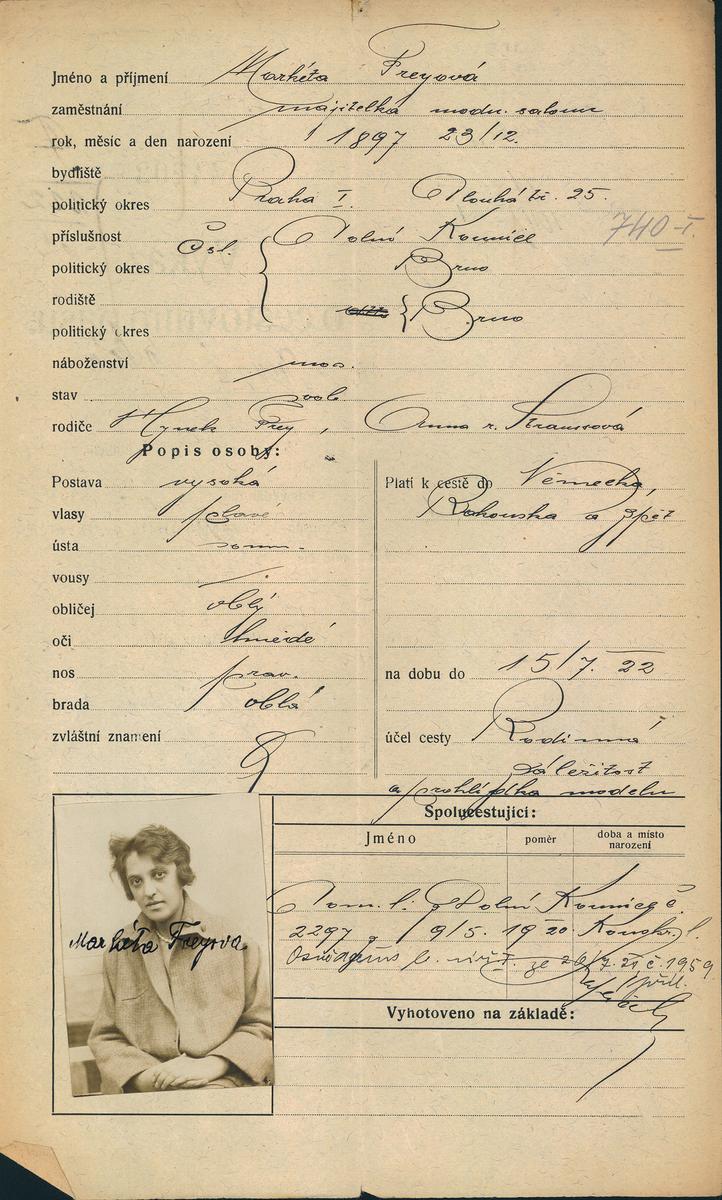 Jméno a příjmení Markéta Freyová
zaměstnání majitelka modn. salonu
rok, měsíc a den narození 1897 23/12.
bydliště
politický okres Praha I. Dlouhá tř. 25.
740-I.
příslušnost Čsl. Dolní Kounice
politický okres Brno
rodiště
politický okres Brno
náboženství mos.
stav svob
rodiče Hynek Frey, Anna r. Straussová
Popis osoby:
Postava vysoká
vlasy plavé
ústa soum.
vousy
obličej oblý
oči hnědé
nos prav.
brada oblá
zvláštní znamení
Platí k cestě do Německa,
Rakouska a zpět
na dobu do 15/7. 22
účel cesty Rodinná
záležitost
a prohlídka modelu
Spolucestující:
Jméno poměr doba a místo narození
Dom. l. Dolní Kounice č.
2297 9/5. 1920.
ze č. 1959
Vyhotoveno na základě:
Markéta Freyova